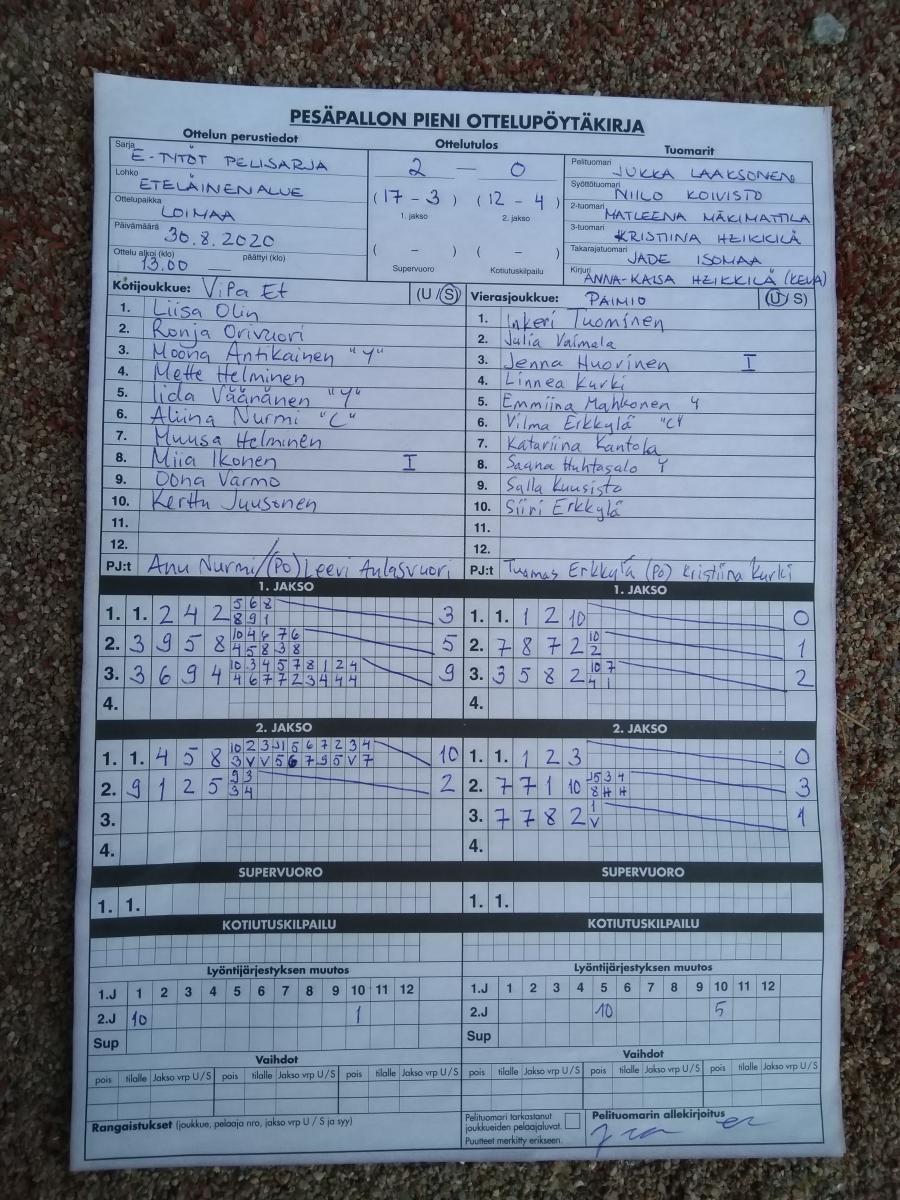 PESÄPALLON PIENI OTTELUPÖYTÄKIRJA
Ottelun perustiedot
Ottelutulos
Tuomarit
Sarja E-TYTÖT PELISARJA
Lohko ETELÄINEN ALUE
Ottelupaikka LOIMAA
Päivämäärä 30.8.2020
Ottelu alkoi (klo) 13.00 päättyi (klo)
2 — 0
(17 - 3) (12 - 4)
1. jakso 2. jakso
( - ) ( - )
Supervuoro Kotiutuskilpailu
Pelituomari JUKKA LAAKSONEN
Syöttötuomari NIILO KOIVISTO
2-tuomari MATLEENA MÄKIMATTILA
3-tuomari KRISTIINA HEIKKILÄ
Takarajatuomari JADE ISOMAA
Kirjuri ANNA-KAISA HEIKKILÄ (KEVA)
Kotijoukkue: ViPa Et (U / S)
1. Liisa Olin
2. Ronja Orivuori
3. Moona Antikainen "Y"
4. Mette Helminen
5. Iida Väänänen "Y"
6. Aliina Nurmi "C"
7. Muusa Helminen
8. Miia Ikonen I
9. Oona Varmo
10. Kerttu Juusonen
11.
12.
PJ:t Anu Nurmi/(PO) Leevi Aulasvuori
Vierasjoukkue: PAIMIO (U / S)
1. Inkeri Tuominen
2. Julia Vaimala
3. Jenna Huovinen I
4. Linnea Kurki
5. Emmiina Mahkonen Y
6. Vilma Erkkylä "C"
7. Katariina Kantola
8. Saana Huhtasalo Y
9. Salla Kuusisto
10. Siiri Erkkylä
11.
12.
PJ:t Tuomas Erkkylä (PO) Kristiina Kurki
1. JAKSO
1. 1. 2 4 2 5 6 8 3
8 9 1
2. 3 9 5 8 10 4 6 7 6 5
4 5 8 3 8
3. 3 6 9 4 10 3 4 5 7 8 1 2 4 9
4 6 7 7 2 3 4 4 4
4.
1. JAKSO
1. 1. 1 2 10 0
2. 7 8 7 2 10 1
2
3. 3 5 8 2 10 7 2
4 1
4.
2. JAKSO
1. 1. 4 5 8 10 2 3 1 5 6 7 2 3 4 10
3 V V 5 6 7 9 5 V 7
2. 9 1 2 5 9 3 2
3 4
3.
4.
2. JAKSO
1. 1. 1 2 3 0
2. 7 7 1 10 5 3 4 3
8 H H
3. 7 7 8 2 1 1
V
4.
SUPERVUORO
1. 1.
SUPERVUORO
1. 1.
KOTIUTUSKILPAILU
KOTIUTUSKILPAILU
Lyöntijärjestyksen muutos
1.J 1 2 3 4 5 6 7 8 9 10 11 12
2.J 10 1
Sup
Lyöntijärjestyksen muutos
1.J 1 2 3 4 5 6 7 8 9 10 11 12
2.J 10 5
Sup
Vaihdot
pois tilalle Jakso vrp U / S pois tilalle Jakso vrp U / S pois tilalle Jakso vrp U / S
Vaihdot
pois tilalle Jakso vrp U / S pois tilalle Jakso vrp U / S pois tilalle Jakso vrp U / S
Rangaistukset (joukkue, pelaaja nro, jakso vrp U / S ja syy)
Pelituomari tarkastanut
joukkueiden pelaajaluvat.
Puutteet merkitty erikseen.
Pelituomarin allekirjoitus